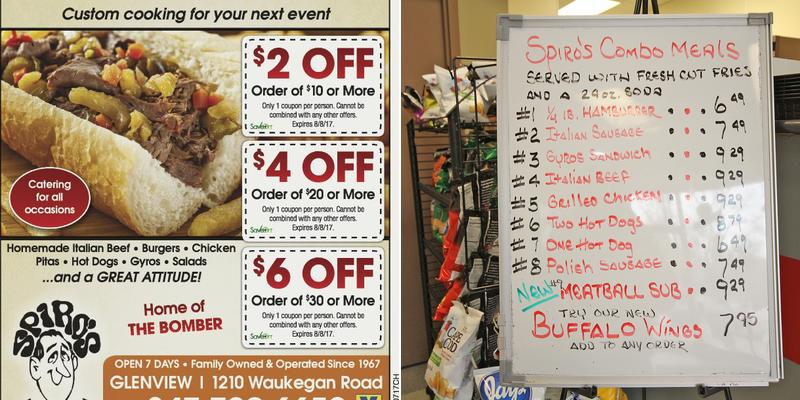 Custom cooking for your next event
$2 OFF
Order of $10 or More
Only 1 coupon per person. Cannot be
combined with any other offers.
Expires 8/8/17.
$4 OFF
Order of $20 or More
Only 1 coupon per person. Cannot be
combined with any other offers.
Expires 8/8/17.
Catering
for all
occasions
Homemade Italian Beef • Burgers • Chicken
Pitas • Hot Dogs • Gyros • Salads
...and a GREAT ATTITUDE!
$6 OFF
Order of $30 or More
Only 1 coupon per person. Cannot be
combined with any other offers.
Expires 8/8/17.
SPIRO'S
Home of
THE BOMBER
OPEN 7 DAYS • Family Owned & Operated Since 1967
GLENVIEW | 1210 Waukegan Road
SPIRO'S COMBO MEALS
SERVED WITH FRESH CUT FRIES
AND A 24OZ. SODA
#1 1/4 lB. HAMBURGER . . . 6 49
#2 Italian Sausage . . . 7 49
#3 Gyros Sandwich . . . 9 29
#4 Italian Beef . . . 9 29
#5 Grilled Chicken . . . 9 29
#6 Two Hot Dogs . . . 8 79
#7 One Hot Dog . . . 6 49
#8 Polish Sausage . . . 7 49
NEW #9 MEATBALL SUB . . 9 29
TRY OUR NEW
BUFFALO WINGS 7 95
ADD TO ANY ORDER
CAPE COD
Lay's